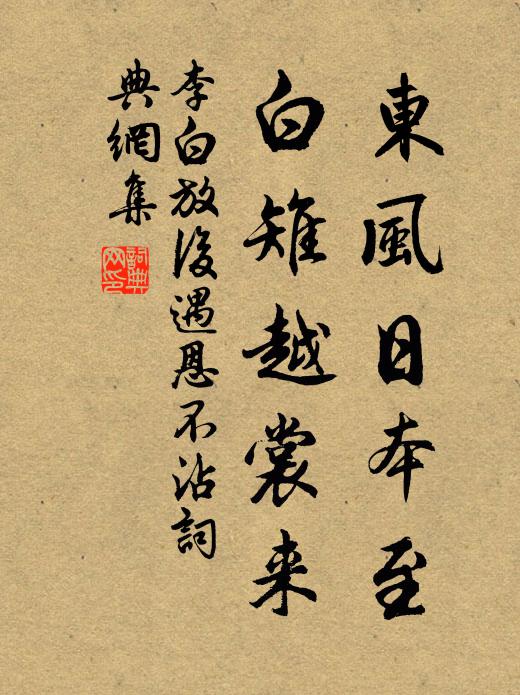 東風日本至
白雉越裳来
李白放後遇恩不沾詞
典網集
詞典網印